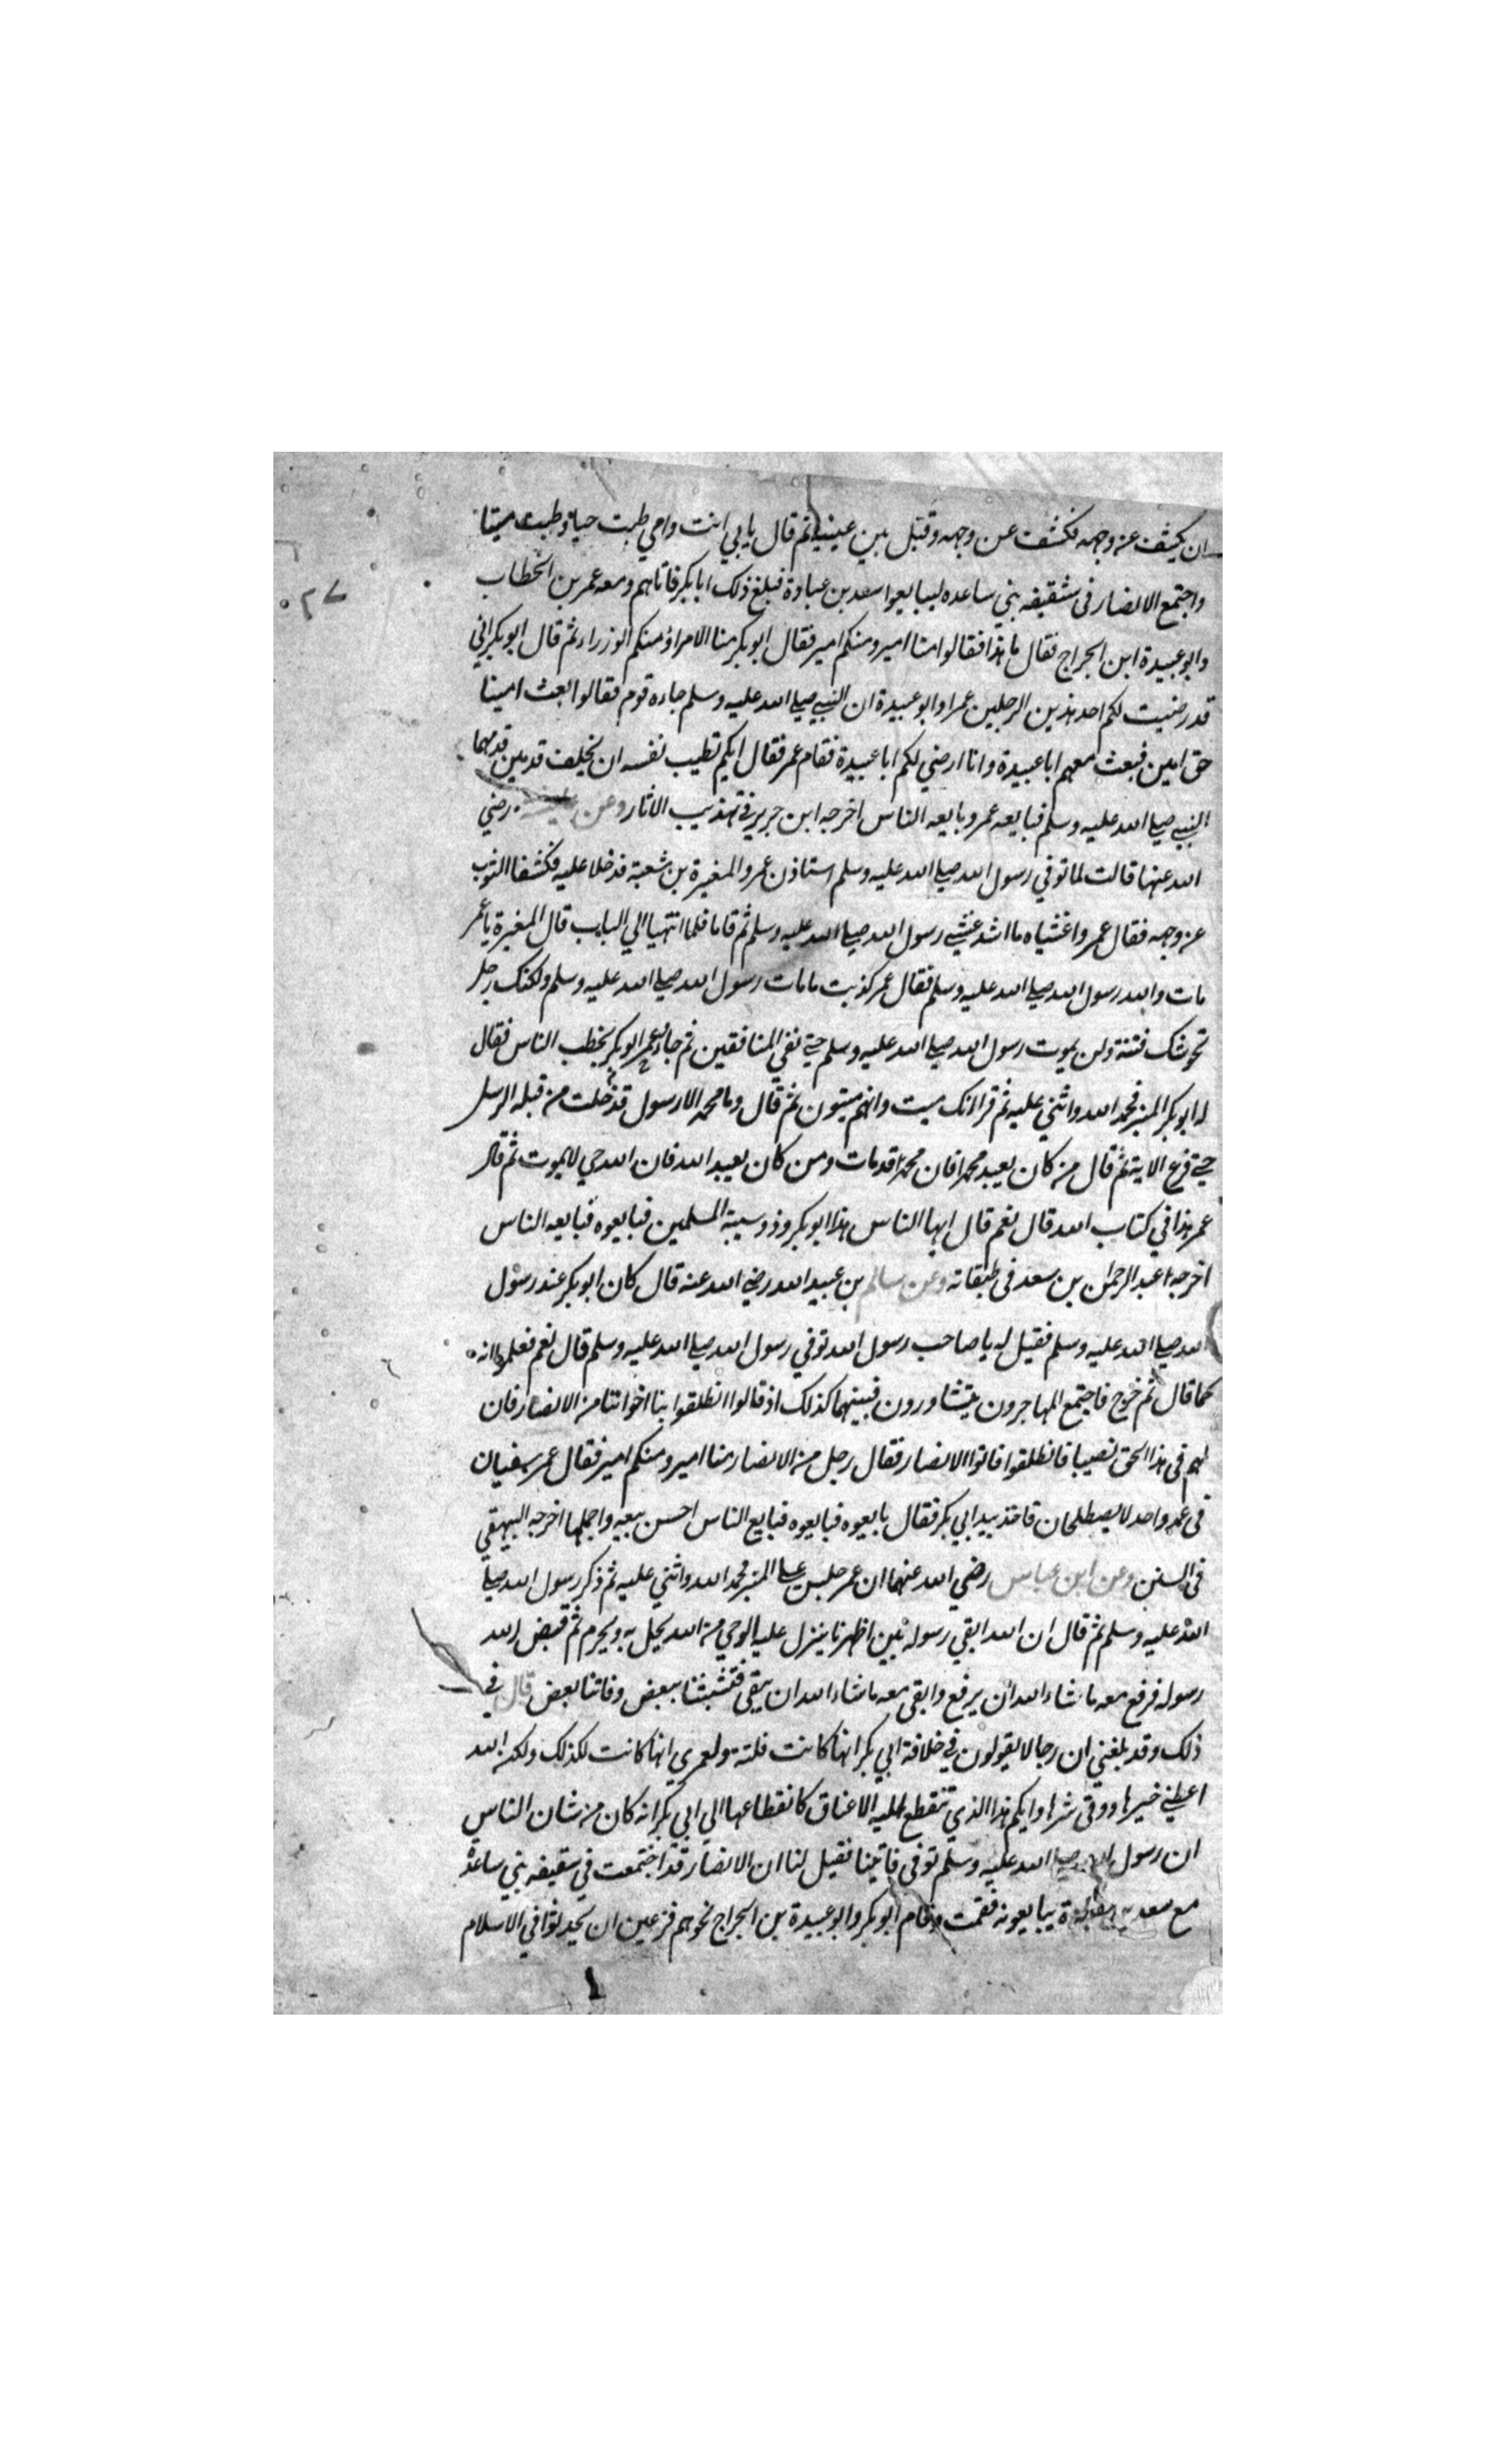 ان يكشف عن وجهه فكشف عن وجهه وقبل بين عينيه ثم قال بابي انت وامي طبت حياة وطبت ميتا
واجتمع الانصار فى شقيفه بني ساعده ليبايعوا سعد بن عبادة فبلغ ذلك ابا بكر فاتاهم ومعه عمر بن الخطاب
۲۷
وابو عبيدة ابن الجراح فقال ما هذا فقالوا منا امير ومنكم امير فقال ابو بكر منا الامراؤ منكم الوزراء ثم قال ابو بكر اني
قد رضيت لكم احد هذين الرجلين عمر او ابو عبيدة ان النبي صلى الله عليه وسلم جاءه قوم فقالوا ابعث امينا
حق امين فبعث معهم ابا عبيدة وانا ارضي لكم ابا عبيدة فقام عمر فقال ايكم تطيب نفسه ان يخلف قدمين قدمهما
النبي صلى الله عليه وسلم فبايعه عمر وبايعه الناس اخرجه ابن جرير في تهذيب الاثار وعن عايشة رضي
الله عنها قالت لما توفي رسول الله صلى الله عليه وسلم استاذن عمر والمغيرة بن شعبة فدخلا عليه فكشفا الثوب
عن وجهه فقال عمر واغشياه ما اشد غشي رسول الله صلى الله عليه وسلم ثم قاما فلما انتهيا الي الباب قال المغيرة يا عمر
مات والله رسول الله صلى الله عليه وسلم فقال عمر كذبت ما مات رسول الله صلى الله عليه وسلم ولكنك رجل
تحوشك فتنة ولن يموت رسول الله صلى الله عليه وسلم حتى نفي المنافقين ثم جاء ابو بكر وعمر يخطب الناس فقال
له ابو بكر المنبر فحمد الله واثني عليه ثم قرا انك ميت وانهم ميتون ثم قال وما محمد الا رسول قد خلت من قبله الرسل
حتى فرغ الاية ثم قال من كان يعبد محمدا فان محمدا قد مات ومن كان يعبد الله فان الله حي لا يموت ثم قال
عمر هذا في كتاب الله قال نعم قال ايها الناس هذا ابو بكر وذو سيبة المسلمين فبايعوه فبايعه الناس
اخرجه عبد الرحمن بن سعد فى طبقاته وعن سالم بن عبيد الله رضي الله عنه قال كان ابو بكر عند رسول
الله صلى الله عليه وسلم فقيل له يا صاحب رسول الله توفي رسول الله صلى الله عليه وسلم قال نعم فعلموا انه
كما قال ثم خرج فاجتمع المهاجرون يتشاورون فبينهما كذلك اذ قالوا انطلقوا بنا اخواننا من الانصار فان
لهم فى هذا الحق نصيبا فانطلقوا فاتوا الانصار فقال رجل من الانصار منا امير ومنكم امير فقال عمر سيفان
فى غمد واحد لا يصطلحان فاخذ بيد ابي بكر فقال بايعوه فبايعوه فبايع الناس احسن بيعه واجملها اخرجه البيهقي
فى السنن وعن ابن عباس رضي الله عنهما ان عمر جلس على المنبر فحمد الله واثني عليه ثم ذكر رسول الله صلى
الله عليه وسلم ثم قال ان الله ابقي رسوله بين اظهرنا ينزل عليه الوحي من الله يحل به ويحرم ثم قبض الله
رسوله فرفع معه ما شاء الله ان يرفع وابقى معه ما شاء الله ان يبقى فتشبثنا ببعض وفاتنا بعض قال في
ذلك وقد بلغني ان رجالا يقولون في خلافة ابي بكر انها كانت فلتة ولعمري انها كانت لكذلك ولكن الله
اعطي خيرها ووقى شرها وايكم هذا الذي تنقطع اليه الاعناق كانقطاعها الي ابي بكر انه كان من شان الناس
ان رسول الله صلى الله عليه وسلم توفى فاتينا فقيل لنا ان الانصار قد اجتمعت في سقيفه بني ساعدة
مع سعد يبايعونه فقمت وقام ابو بكر وابو عبيدة بن الجراح نحوهم فزعين ان يحدثوا في الاسلام